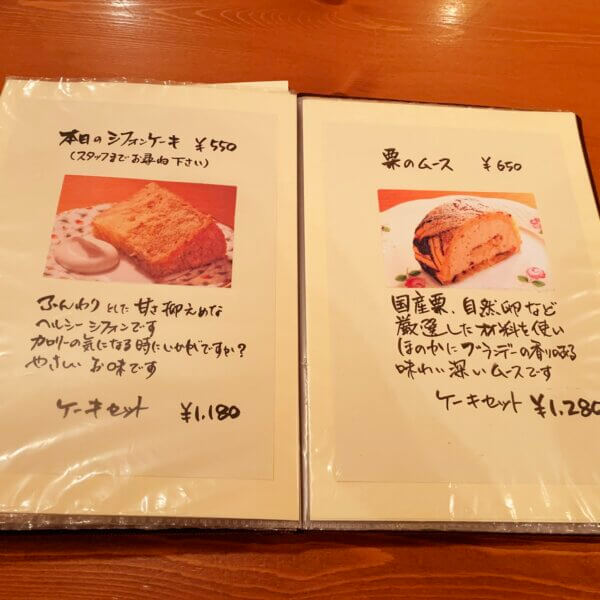 本日のシフォンケーキ ¥550
(スタッフまでお尋ね下さい)
ふんわりとした甘さ抑えめな
ヘルシーシフォンです
カロリーの気になる時にいかがですか?
やさしいお味です
ケーキセット ¥1,180
栗のムース ¥650
国産栗、自然卵など
厳選した材料を使い
ほのかにブランデーの香りのある
味わい深いムースです
ケーキセット ¥1,280